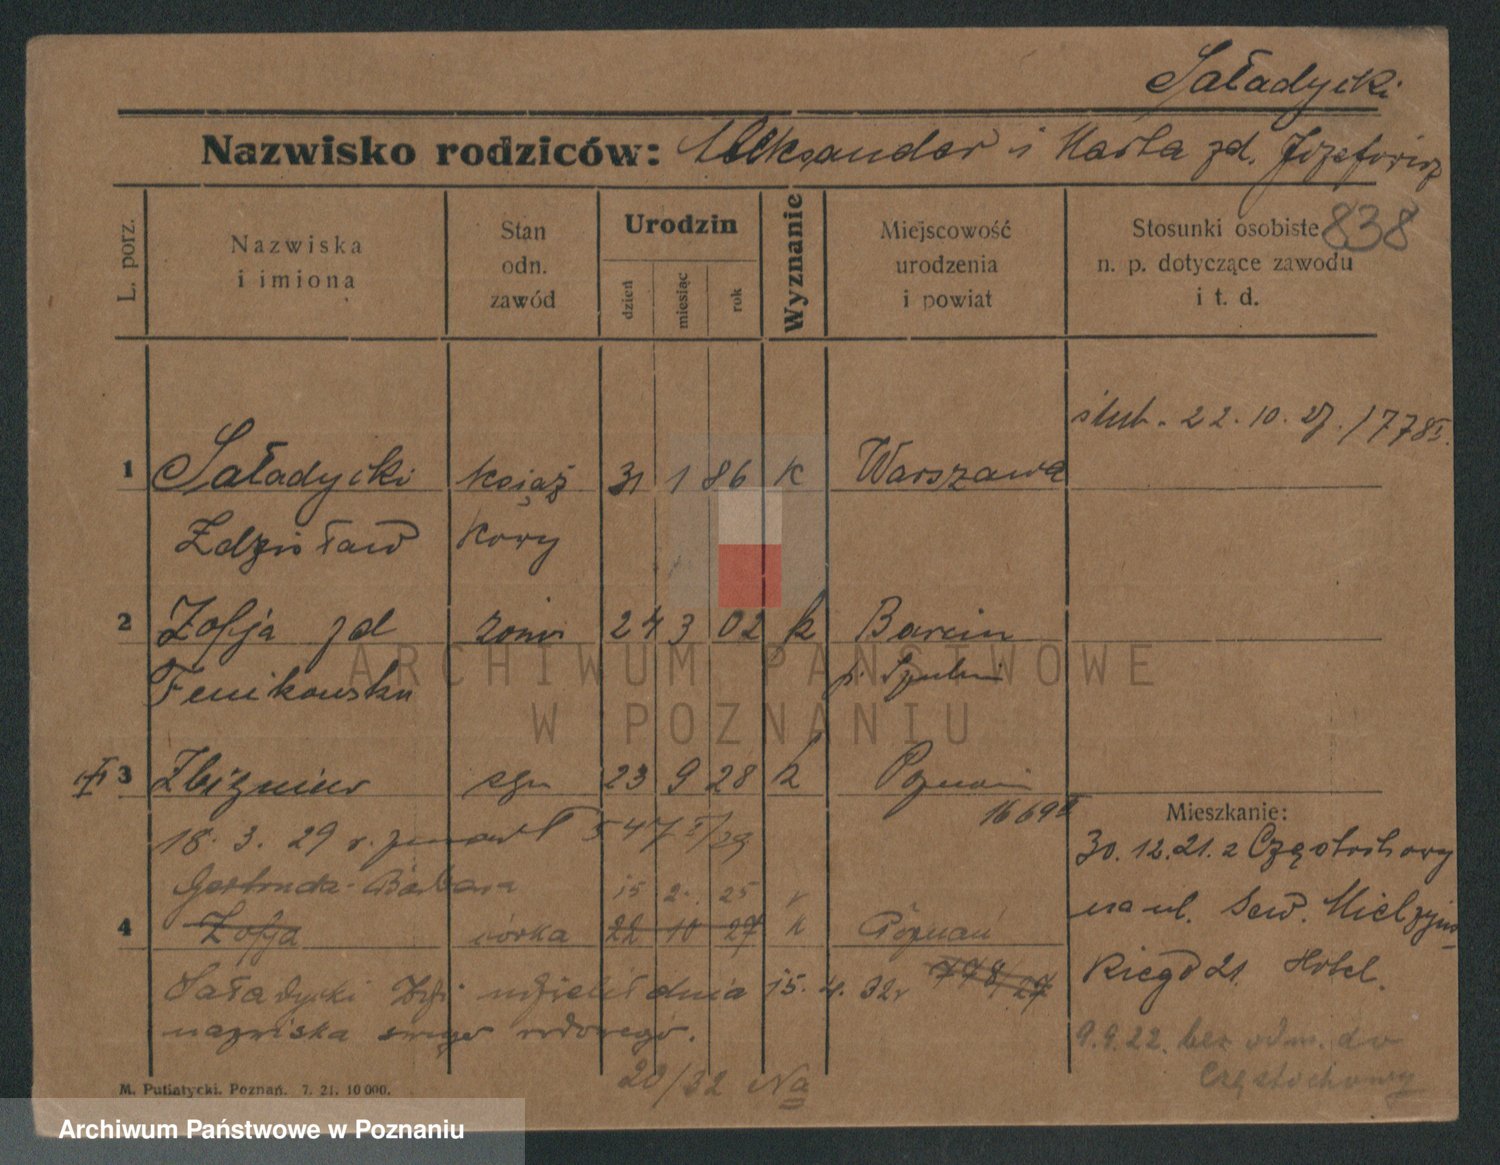 Saładycki
Nazwisko rodziców: Aleksander i Marta zd. Józefowicz
838
L. porz.
Nazwiska
i imiona
Stan
odn.
zawód
Urodzin
dzień
miesiąc
rok
Wyznanie
Miejscowość
urodzenia
i powiat
Stosunki osobiste
n. p. dotyczące zawodu
i t. d.
ślub. 22.10.27. /778 I.
1 Saładycki książ 31 1 86 k Warszawa
Zdzisław kowy
2 Zofja zd żona 24 3 02 k Barcin
Fenikowska p. Szubin
3 Zbigniew syn 23 9 28 k Poznań
1669 II
18. 3. 29 r. zmarł 547 I/29
Gertruda-Barbara 15 2. 25
4 Zofja córka 22 10 27 k Poznań
778/27
Saładycki udzielił dnia 15. 4. 32r
nazwiska swego rodowego.
20/32 Na
Mieszkanie:
30.12.21. z Częstochowy
na ul. Sew. Mielżyńs-
kiego 21. Hotel.
9.9.22. bez odm. do
Częstochowy
M. Putiatycki, Poznań. 7. 21. 10 000.
ARCHIWUM PAŃSTWOWE
W POZNANIU
Archiwum Państwowe w Poznaniu